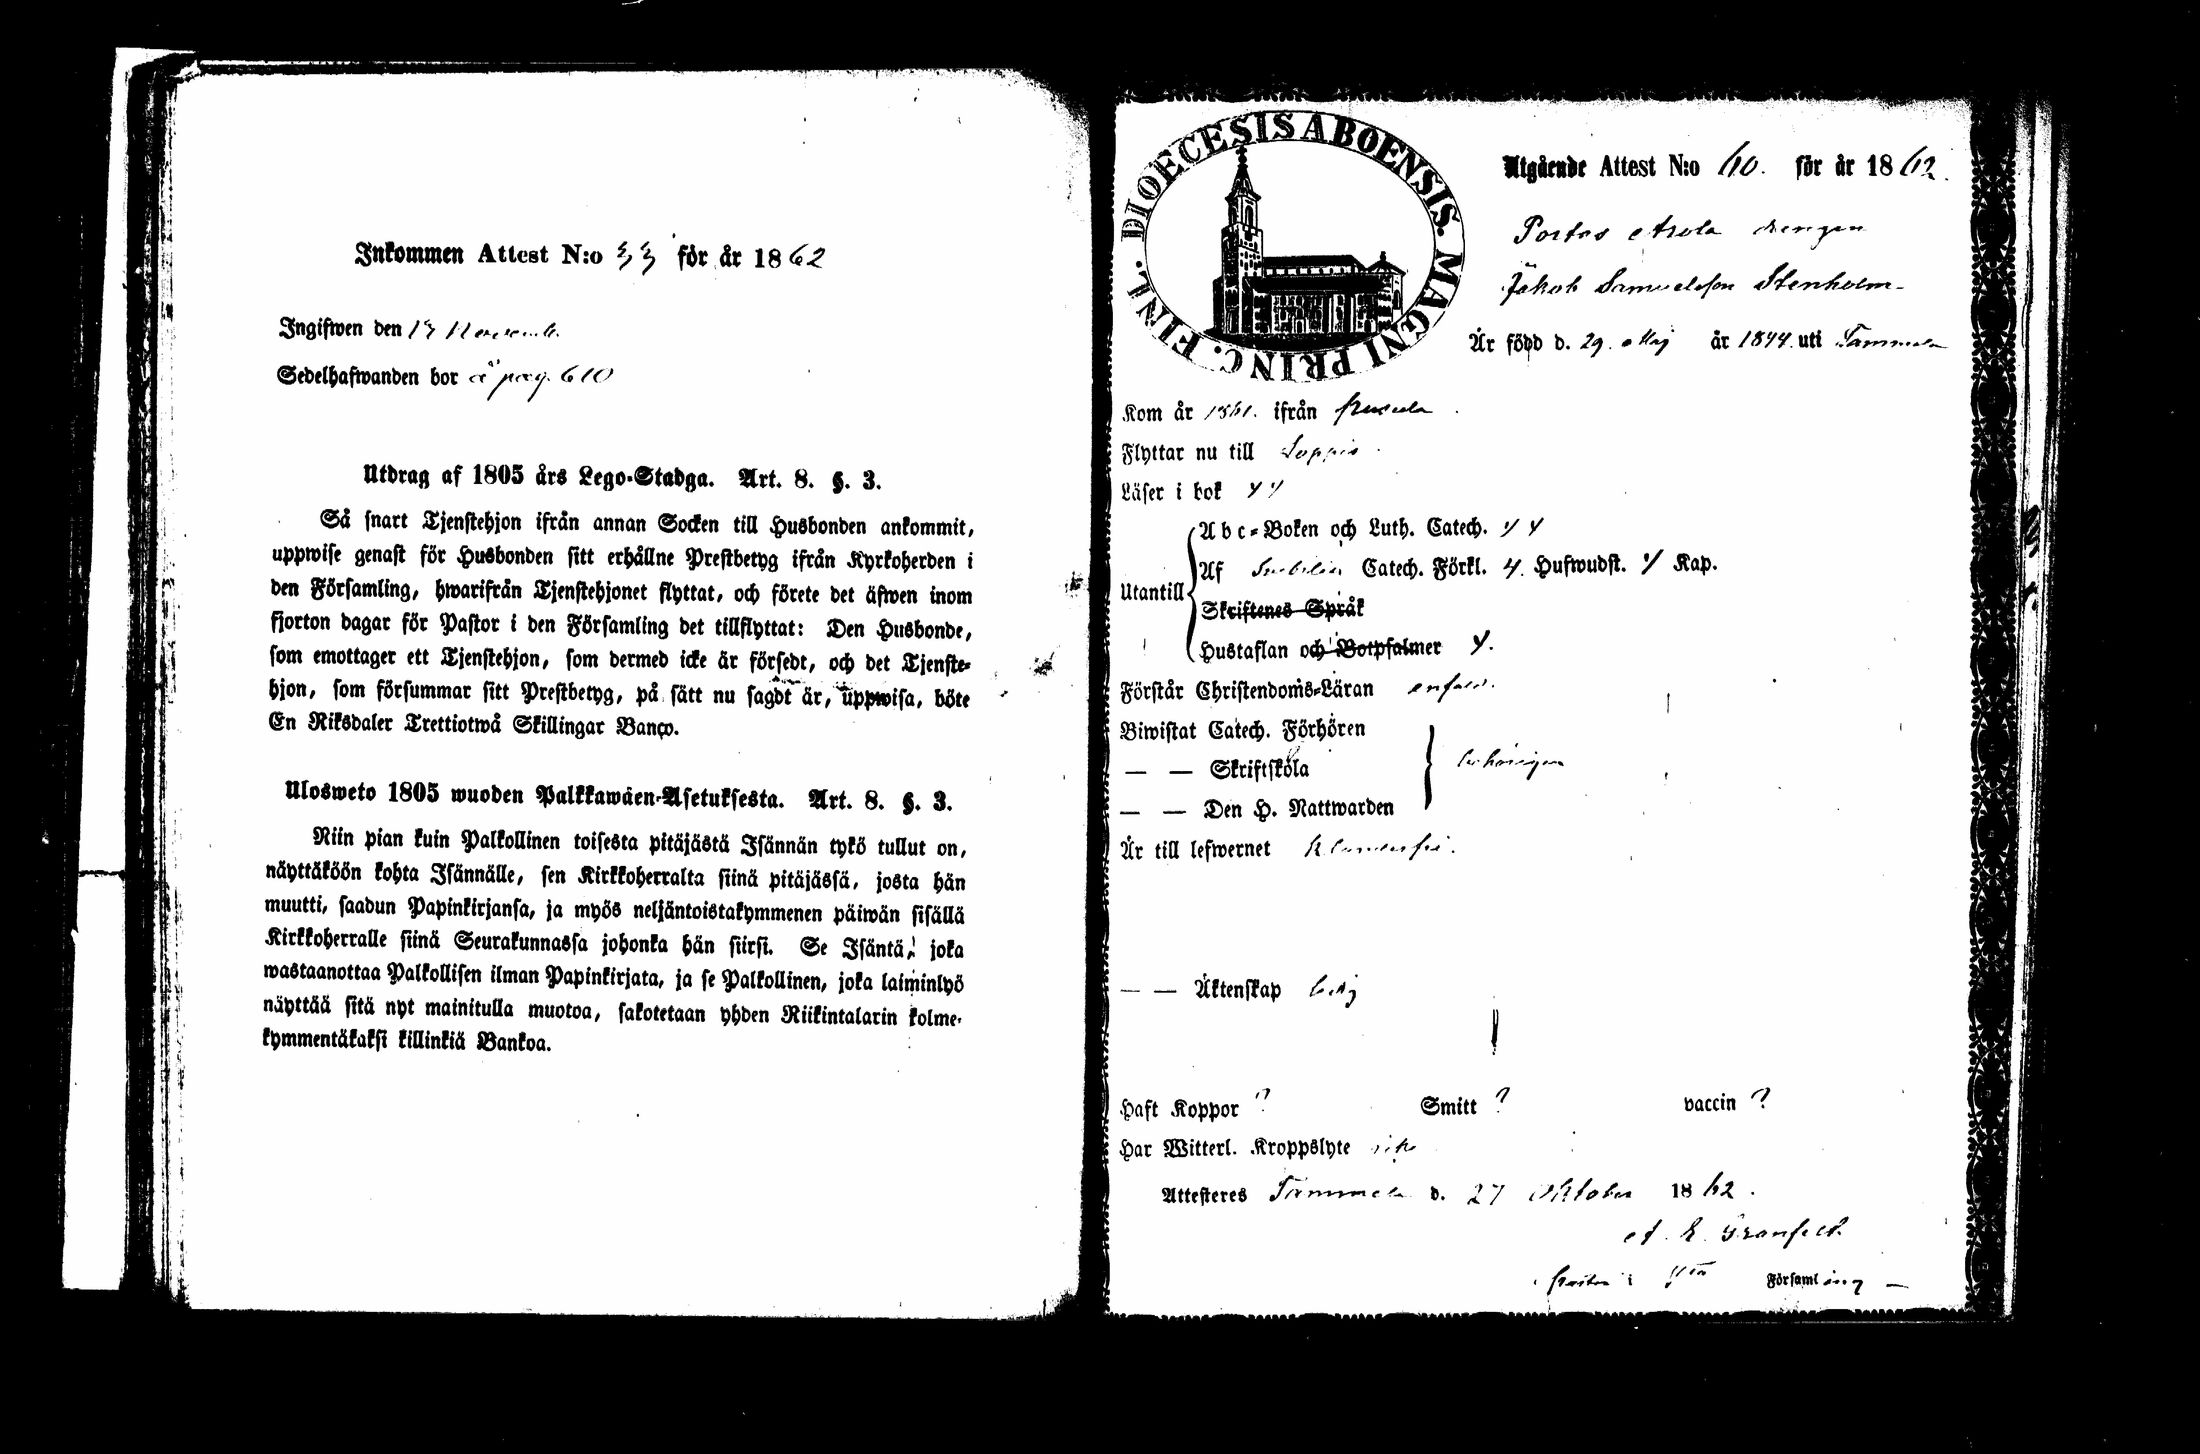 Inkommen Attest N:o 33 för år 1862
Ingifwen den 13 Novemb.
Sedelhafwanden bor å pag. 610
Utdrag af 1805 års Lego-Stadga. Art. 8. §. 3.
Så snart Tjenstehjon ifrån annan Socken till Husbonden ankommit,
uppwise genast för Husbonden sitt erhållne Prestbetyg ifrån Kyrkoherden i
den Församling, hwarifrån Tjenstehjonet flyttat, och förete det äfwen inom
fjorton dagar för Pastor i den Församling det tillflyttat: Den Husbonde,
som emottager ett Tjenstehjon, som dermed icke är försedt, och det Tjenste-
hjon, som försummar sitt Prestbetyg, på sätt nu sagdt är, uppwisa, böte
En Riksdaler Trettiotwå Skillingar Banço.
Ulosweto 1805 wuoden Palkkawäen-Asetuksesta. Art. 8. §. 3.
Niin pian kuin Palkollinen toisesta pitäjästä Isännän tykö tullut on,
näyttäköön kohta Isännälle, sen Kirkkoherralta siinä pitäjässä, josta hän
muutti, saadun Papinkirjansa, ja myös neljäntoistakymmenen päiwän sisällä
Kirkkoherralle siinä Seurakunnassa johonka hän siirsi. Se Isäntä, joka
wastaanottaa Palkollisen ilman Papinkirjata, ja se Palkollinen, joka laiminlyö
näyttää sitä nyt mainitulla muotoa, sakotetaan yhden Riikintalarin kolme-
kymmentäkaksi killinkiä Bankoa.
DIOECESIS ABOENSIS. MAGNI PRINC. FINL.
Utgående Attest N:o 60. för år 1862.
Portas drengen
Jakob Samuelsson Stenholm
Är född d. 29. Maj år 1844 uti Tammela
Kom år 1861. ifrån
Flyttar nu till Loppis
Läser i bok
Utantill
Abc-Boken och Luth. Catech.
Af Svebilii Catech. Förkl. 4. Hufwudst. Kap.
Skriftenes Språk
Hustaflan och Botpsalmer
Förstår Christendoms-Läran enfald.
Biwistat Catech. Förhören
— — Skriftskola behörigen
— — Den H. Nattwarden
Är till lefwernet klanderfri.
— — Äktenskap ledig
Haft Koppor ? Smitt ? vaccin ?
Har Witterl. Kroppslyte icke
Attesteras Tammela d. 27 Oktober 1862.
Granfelt
Församling